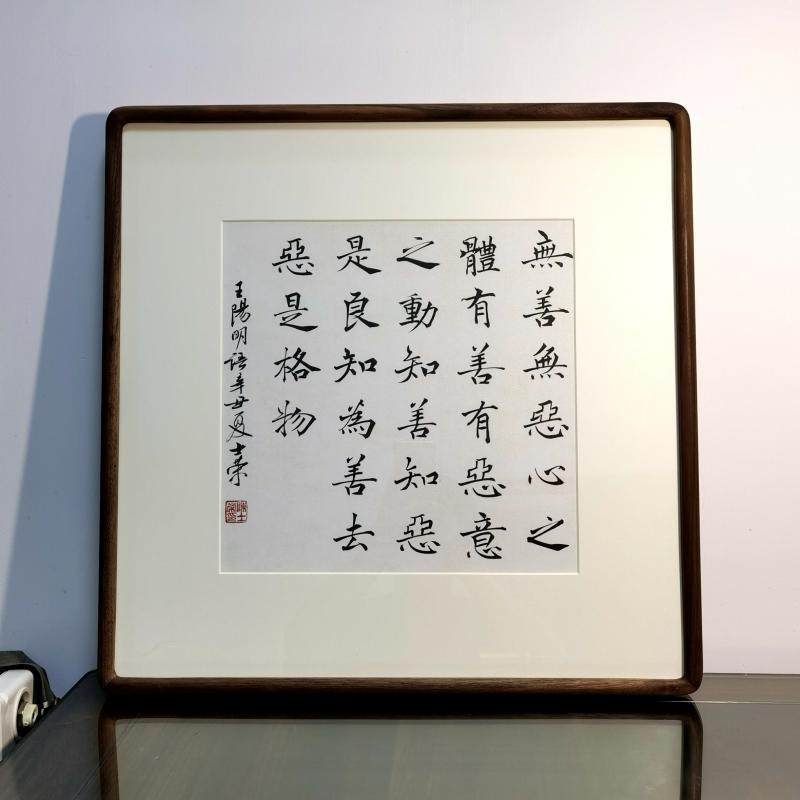 無善無惡心之
體有善有惡意
之動知善知惡
是良知為善去
惡是格物
王陽明語辛丑夏士榮